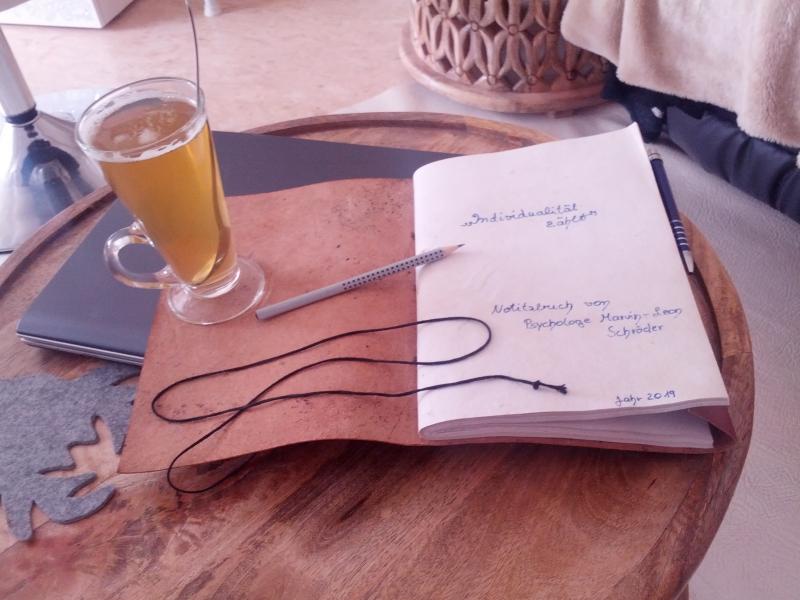 „Individualität
zählt"
Notitzbuch von
Psychologe Marvin-Leon
Schröder
Jahr 2019